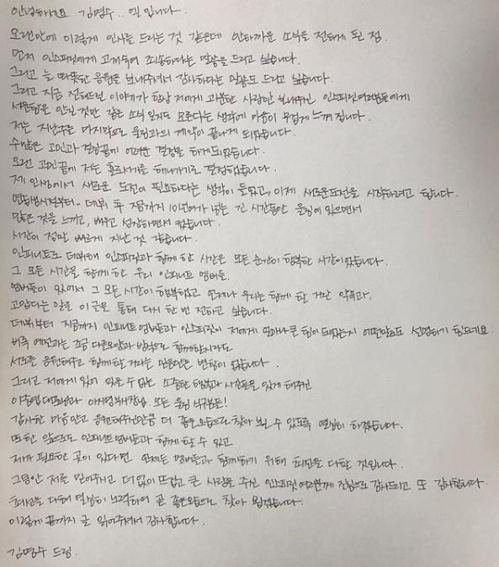 안녕하세요 김명수.. 엘 입니다
오랜만에 이렇게 인사를 드리는 것 같은데 안타까운 소식을 전하게 된 점.
먼저 인스피릿에게 고개숙여 죄송하다는 말씀을 드리고 싶습니다.
그리고 늘 따뜻한 응원을 보내주셔서 감사하다는 말씀도 드리고 싶습니다.
그리고 지금 전해드릴 이야기가 항상 저에게 과분한 사랑만 보내주신 인스피릿여러분들에게
서운함을 안길 것만 같은 소식 일지도 모른다는 생각에 마음이 무겁게 느껴집니다.
저는 지난주를 마지막으로 울림과의 계약이 끝나게 되었습니다.
수많은 고민과 결정끝에 어려운 결정을 하게되었습니다.
오랜 고민끝에 저는 홀로서기를 해나가기로 결정했습니다.
제 인생에서 새로운 도전이 필요하다는 생각이 들었고, 이제 새로운도전을 시작하려고 합니다.
연습생시절부터~ 데뷔 후 지금까지 10년여가 넘는 긴 시간동안 울림에 있으면서
많은 것을 느끼고, 배우고 성장하면서 왔습니다.
시간이 정말 빠르게 지난 것 같습니다.
인피니트로 데뷔해 인스피릿과 함께 한 시간은 모든 순간이 행복한 시간이었습니다.
그 모든 시간을 함께 한 우리 인피니트 멤버들.
멤버들이 있어서 그 모든 시간이 행복했고 언제나 우리는 함께 할 거란 약속과,
고맙다는 말을 이 글을 통해 다시 한 번 전하고 싶습니다.
데뷔부터 지금까지 인피니트 멤버들과 인스피릿이 저에게 얼마나 큰 힘이 돼줬는지 어떤말로도 설명하기 힘드네요.
비록 예전과는 조금 다른모양과 방식으로 함께할지라도
서로를 응원해주고 함께할 거라는 믿음만은 변함이 없습니다.
그리고 저에게 잊어 있을 수 없는 소중한 행복과 시간들을 있게 해주신
이중엽대표님과 울림 식구분들!
감사한 마음안고 응원해주신만큼 더 좋은모습으로 찾아 뵐 수 있도록 열심히 하겠습니다.
또한 앞으로도 인피니트 멤버들과 함께 할 수 있고
제가 필요한 곳이 있다면 언제든 멤버들과 함께하기 위해 최선을 다할 것입니다.
그동안 저를 믿어주고 더없이 뜨겁고 큰 사랑을 주신 인스피릿 여러분께 진심으로 감사드리고 또 감사합니다.
최선을 다하며 열심히 노력하여 곧 좋은모습으로 찾아 뵙겠습니다.
이렇게 끝까지 글 읽어주셔서 감사합니다.
김명수 드림.